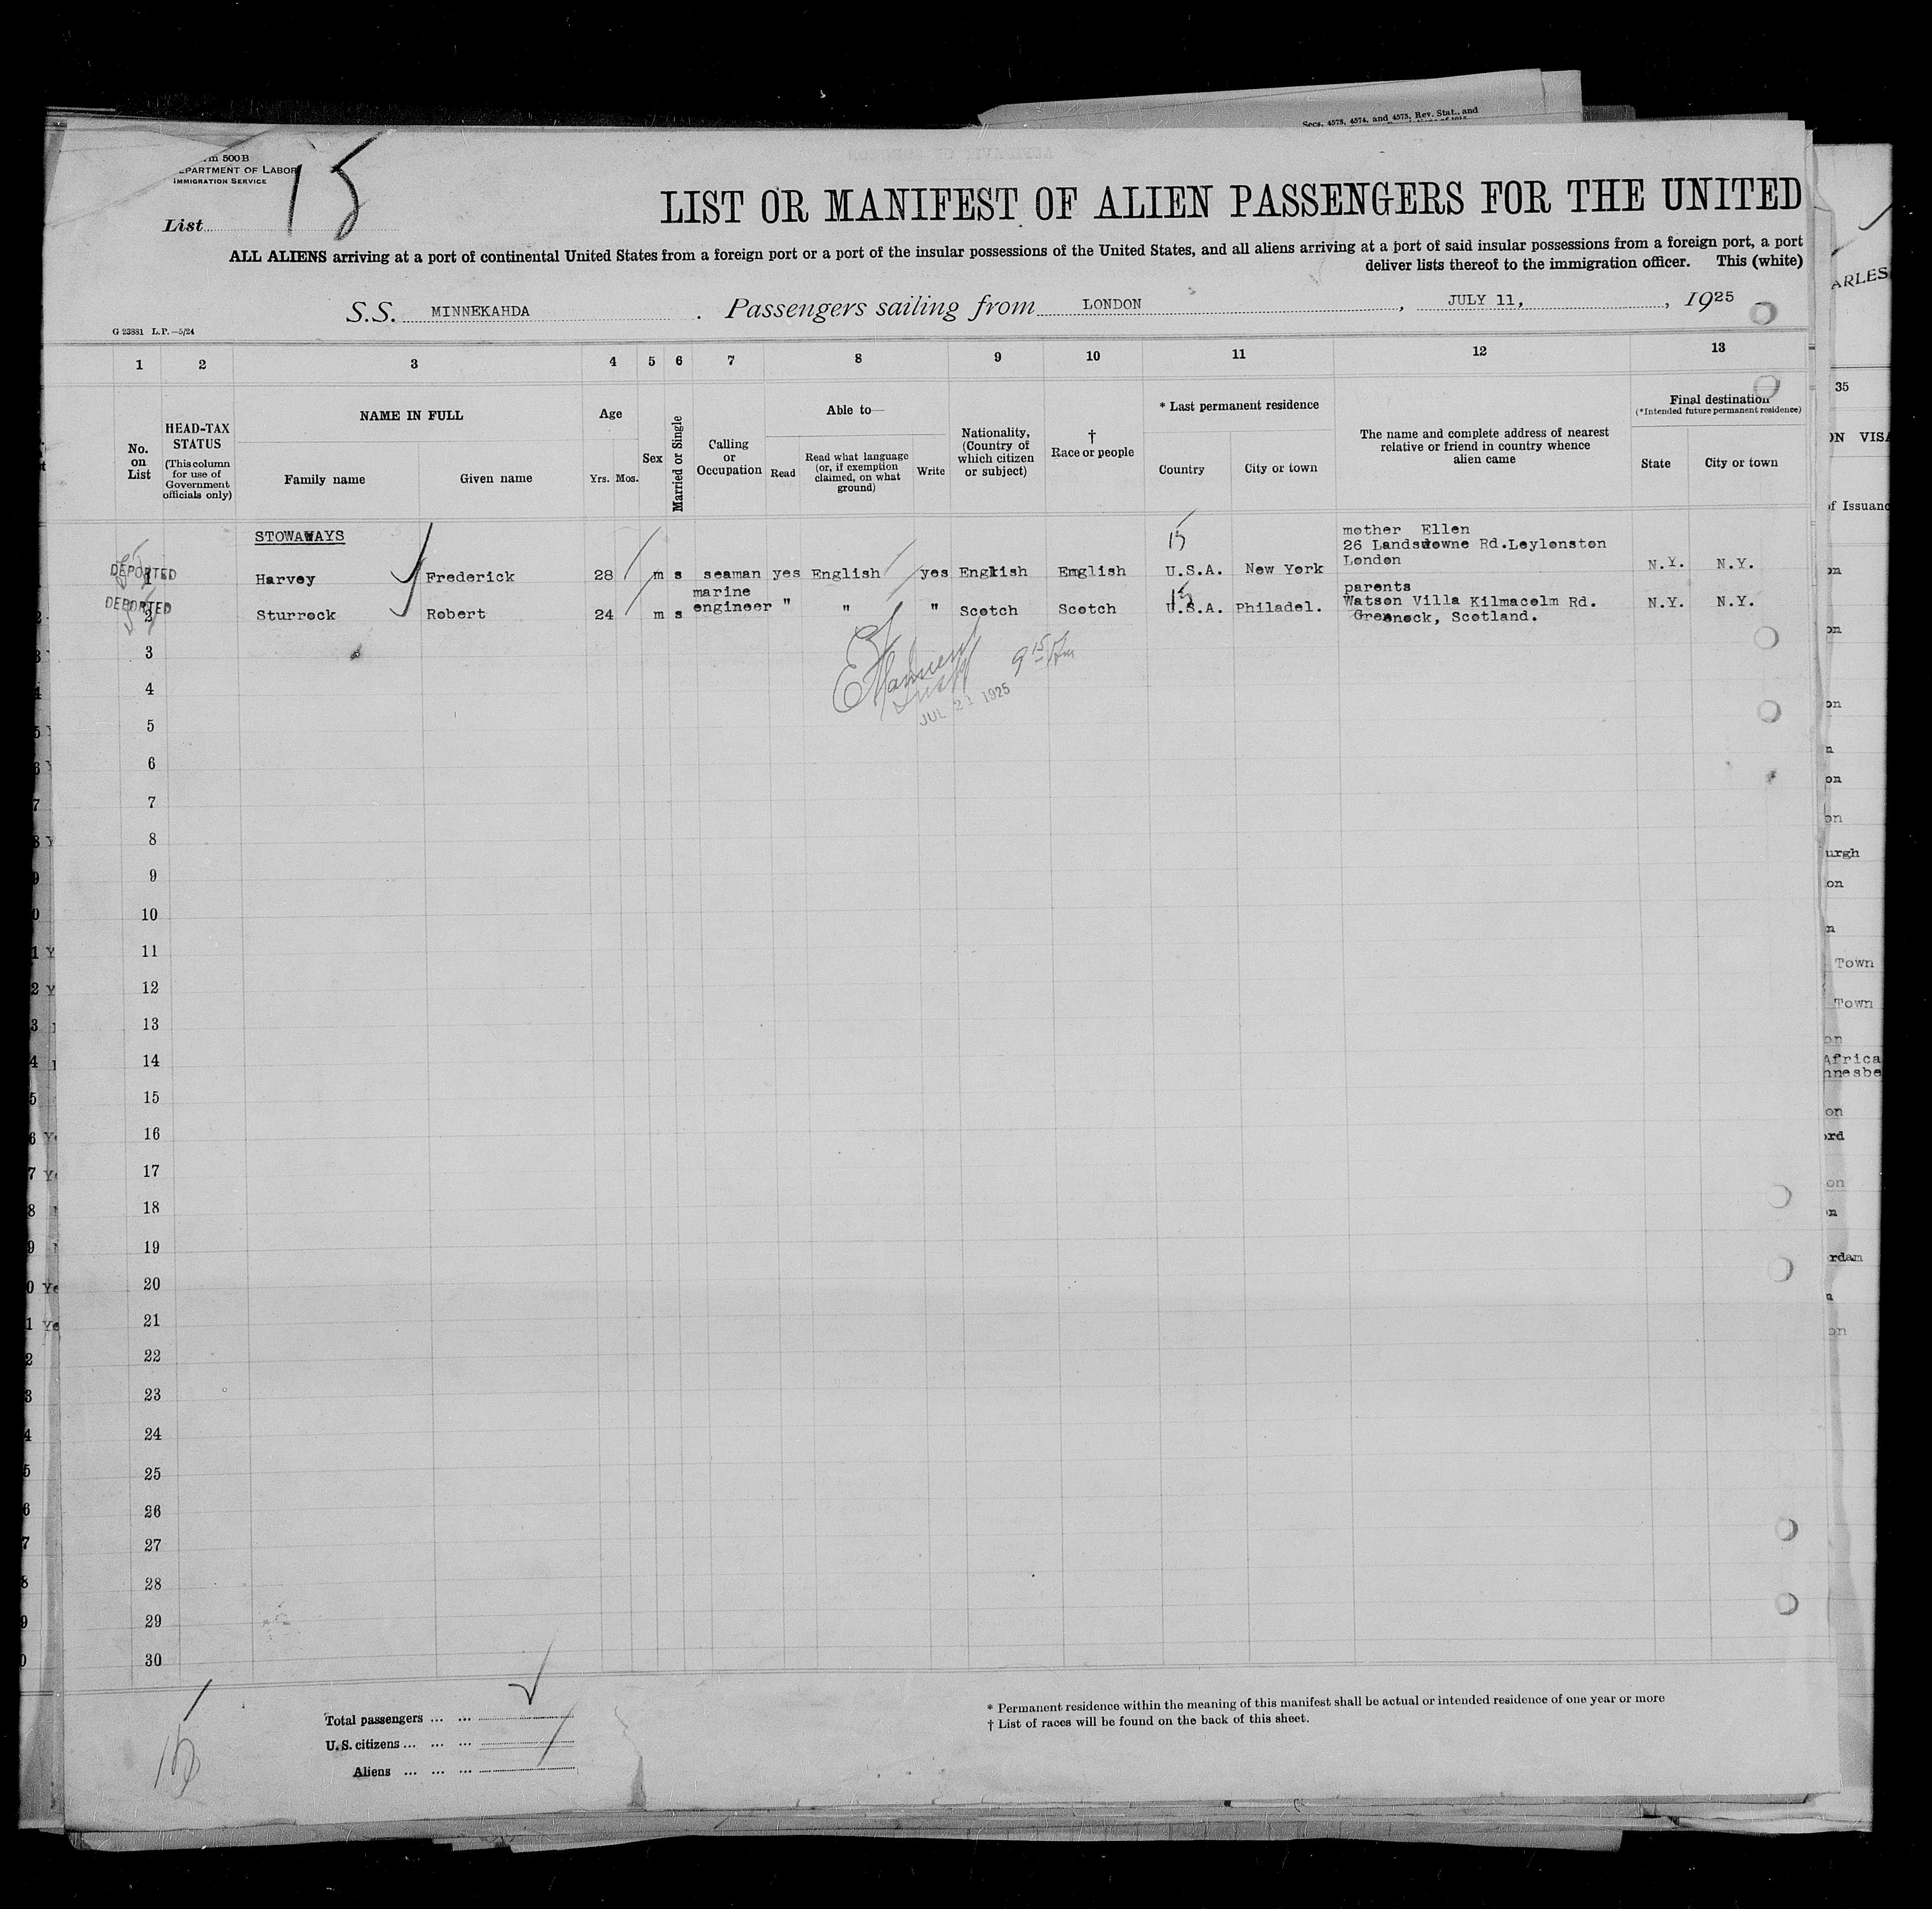 Secs. 4573, 4574, and 4575, Rev. Stat., and
500 B
DEPARTMENT OF LABOR
IMMIGRATION SERVICE
List 15
LIST OR MANIFEST OF ALIEN PASSENGERS FOR THE UNITED
ALL ALIENS arriving at a port of continental United States from a foreign port or a port of the insular possessions of the United States, and all aliens arriving at a port of said insular possessions from a foreign port, a port
deliver lists thereof to the immigration officer. This (white)
ARLES
S.S. MINNEKAHDA. Passengers sailing from LONDON, JULY 11, 1925
G 23881 L.P.—5/24
1 2 3 4 5 6 7 8 9 10 11 12 13
35
No. on List
HEAD-TAX STATUS
(This column for use of Government officials only)
NAME IN FULL
Family name
Given name
Age
Yrs. Mos.
Sex
Married or Single
Calling or Occupation
Able to—
Read
Read what language (or, if exemption claimed, on what ground)
Write
Nationality, (Country of which citizen or subject)
† Race or people
* Last permanent residence
Country
City or town
The name and complete address of nearest relative or friend in country whence alien came
Final destination
(*Intended future permanent residence)
State
City or town
ON VISA
of Issuanc
STOWAWAYS
15
mother Ellen
26 Landsdowne Rd.Leylonston
London
DEPORTED
1 Harvey Frederick 28 m s seaman yes English yes English English U.S.A. New York N.Y. N.Y.
15
parents
DEPORTED
2 Sturrock Robert 24 m s marine engineer " " " Scotch Scotch U.S.A. Philadel. Watson Villa Kilmacolm Rd. N.Y. N.Y.
Greenock, Scotland.
3
9 15 Am
4
JUL 21 1925
5
6
7
8
9
10
11
12
13
14
15
16
17
18
19
20
21
22
23
24
25
26
27
28
29
30
urgh
Town
Town
Africa
nnesbe
ord
rdam
Total passengers ... ...
U.S. citizens ... ... ...
Aliens ... ... ...
15
* Permanent residence within the meaning of this manifest shall be actual or intended residence of one year or more
† List of races will be found on the back of this sheet.